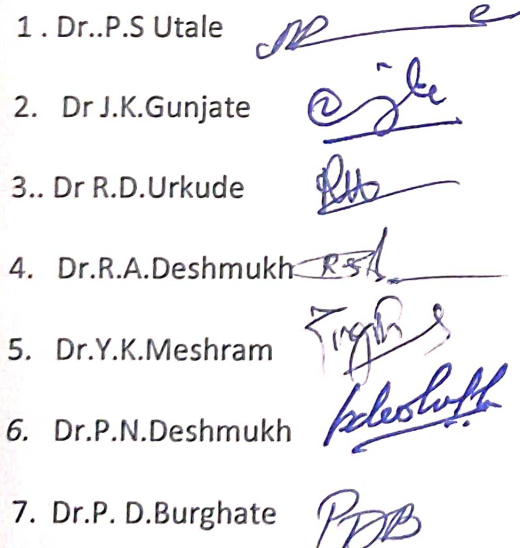 1 . Dr..P.S Utale
2. Dr J.K.Gunjate
3.. Dr R.D.Urkude
4. Dr.R.A.Deshmukh
5. Dr.Y.K.Meshram
6. Dr.P.N.Deshmukh
7. Dr.P. D.Burghate PDB